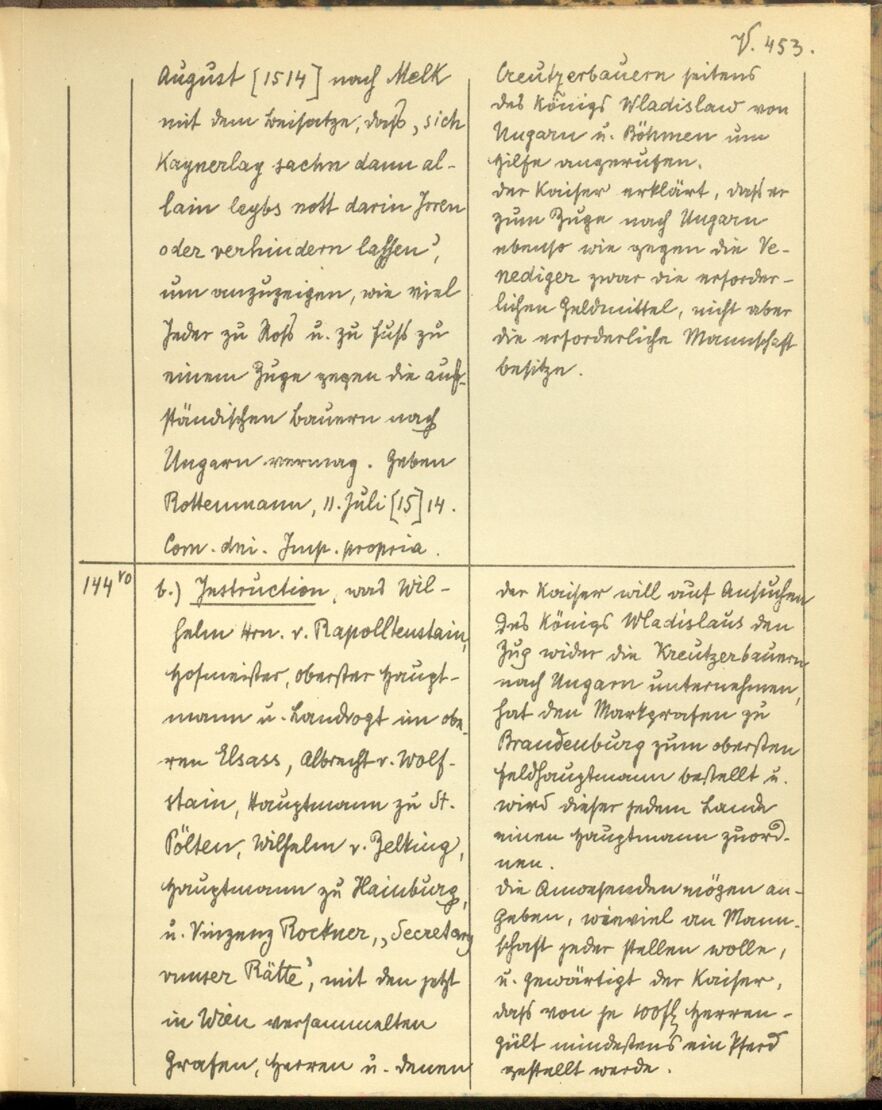 V. 453.
August [1514] nach Melk
mit dem Beisatze, dass „sich
Kaynerlay sachn dann al-
lain leybs nott darin Jrren
oder verhindern lassen",
um anzuzeigen, wie viel
Jeder zu Ross u. zu Fuss zu
einem Zuge gegen die auf-
ständischen Bauern nach
Ungarn vermag. Geben
Rottenmann, 11. Juli [15]14.
Com. dni. Imp. propria.
Creutzerbauern seitens
des Königs Wladislaw von
Ungarn u. Böhmen um
Hilfe angerufen.
Der Kaiser erklärt, dass er
zum Zuge nach Ungarn
ebenso wie gegen die Ve-
nediger zwar die erforder-
lichen Geldmittel, nicht aber
die erforderliche Mannschaft
besitze.
144 vo
b.) Instruction, was Wil-
helm Hrn. v. Rapolltenstain,
Hofmeister, oberster Haupt-
mann u. Landvogt im obe-
ren Elsass, Albrecht v. Wolf-
stain, Hauptmann zu St.
Pölten, Wilhelm v. Zelking,
Hauptmann zu Hainburg,
u. Vinzenz Rockner, „Secretary
vnnser Rätte", mit den jetzt
in Wien versammelten
Grafen, Herren u. denen
Der Kaiser will auf Ansuchen
des Königs Wladislaus den
Zug wider die Kreutzerbauern
nach Ungarn unternehmen,
hat den Markgrafen zu
Brandenburg zum obersten
Feldhauptmann bestellt u.
wird dieser jedem Lande
einen Hauptmann zuord-
nen.
Die Anwesenden mögen an-
geben, wieviel an Mann-
schaft jeder stellen wolle,
u. gewärtigt der Kaiser,
dass von je 100 fl Herren-
gült mindestens ein Pferd
gestellt werde.